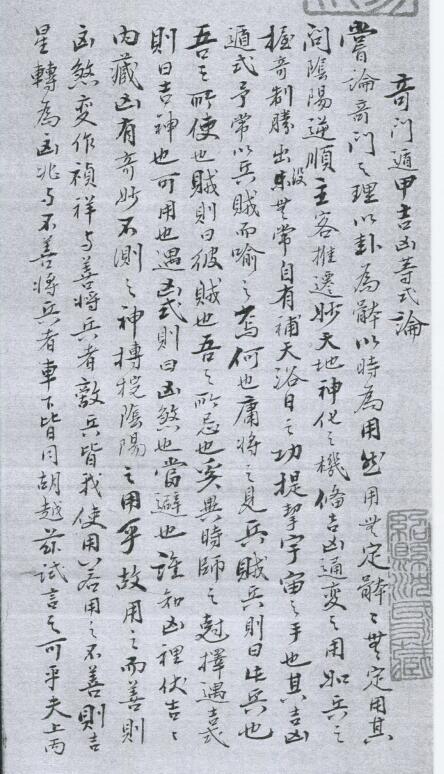 奇门遁甲吉凶等式論
嘗論奇门之理以卦為體以時為用然用無定體々無定用其
间陰陽逆順主客推遷妙天地神化之機備吉凶通變之用如兵之
握奇制勝出没無常自有補天浴日之功提挈宇宙之手也其吉凶
遁式予常以兵賊而喻之焉何也庸将之見兵賊兵則曰此兵也
吾之所使也賊則曰彼賊也吾之所忌也奚異時師之尅擇遇吉式
則曰吉神也可用也遇凶式則曰凶煞也當避也誰知凶裡伏吉々
内藏凶有奇妙不測之神摶捖陰陽之用乎故用之而善則
凶煞变作禎祥与善将兵者敵兵皆我使用若用之不善則吉
星轉為凶兆与不善将兵者車下皆同胡越茲试言之可乎夫上丙